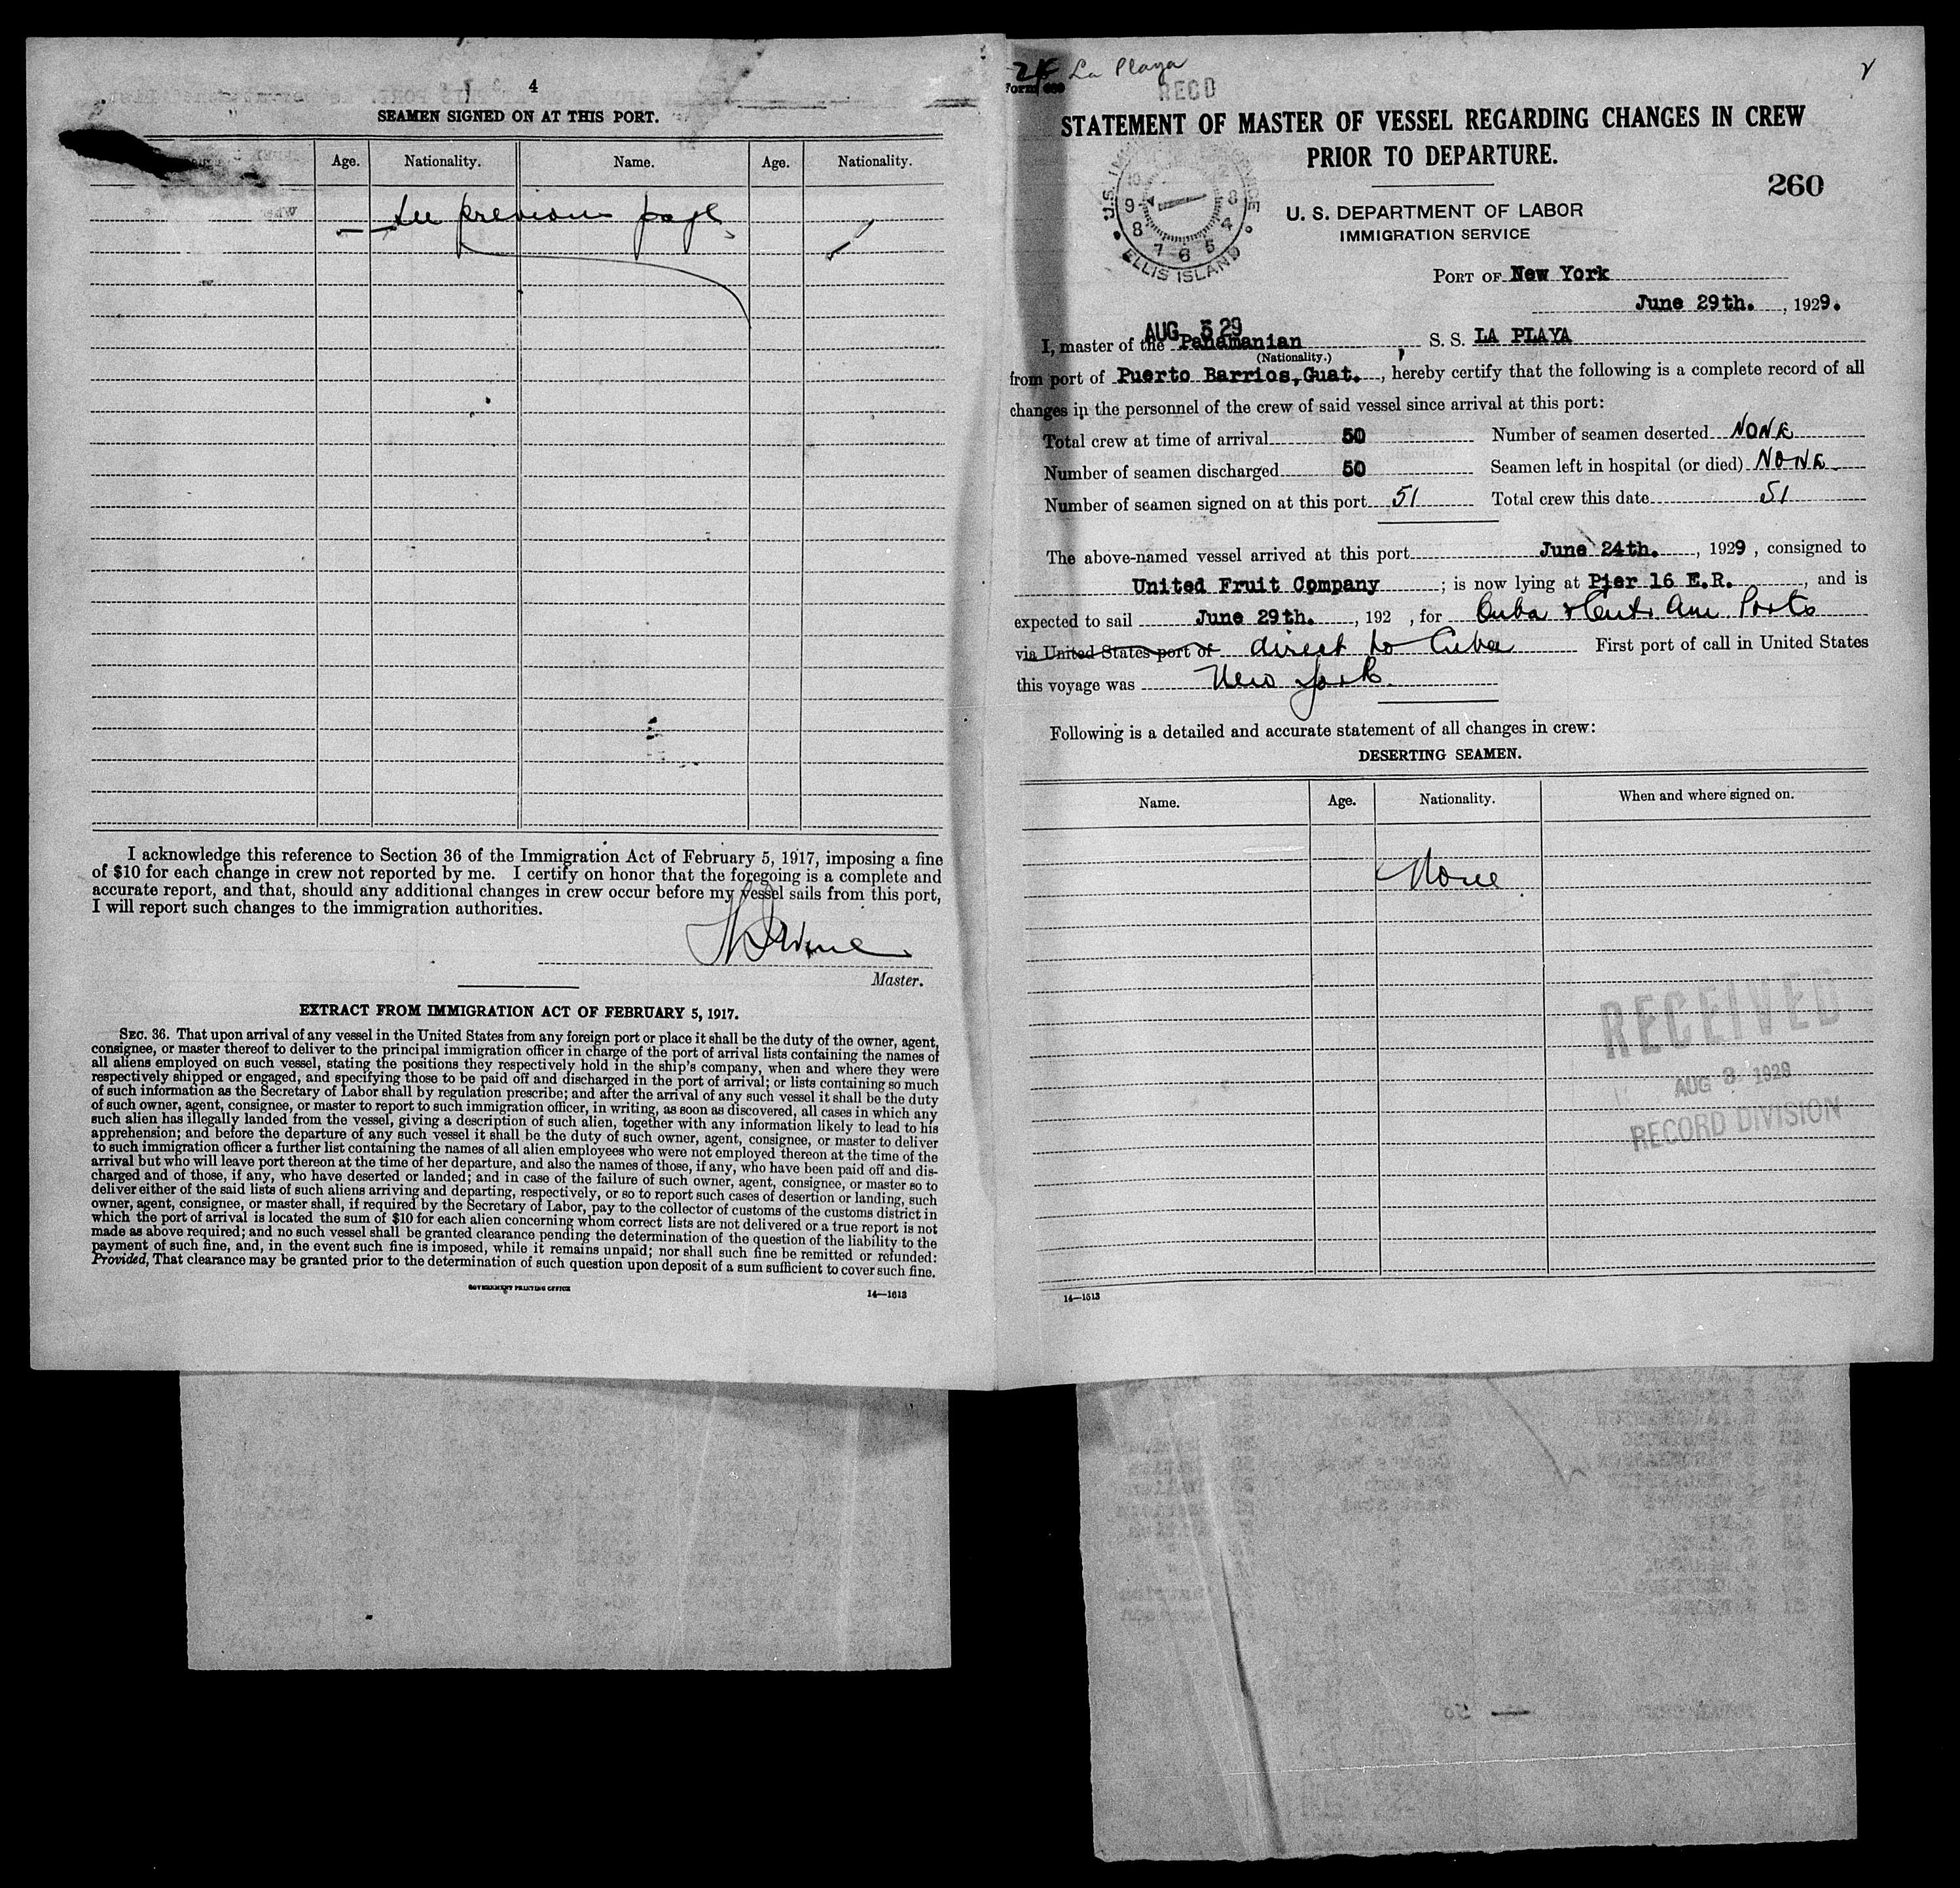 4
SEAMEN SIGNED ON AT THIS PORT.
Age. Nationality. Name. Age. Nationality.
See previous page
I acknowledge this reference to Section 36 of the Immigration Act of February 5, 1917, imposing a fine
of $10 for each change in crew not reported by me. I certify on honor that the foregoing is a complete and
accurate report, and that, should any additional changes in crew occur before my vessel sails from this port,
I will report such changes to the immigration authorities.
Master.
EXTRACT FROM IMMIGRATION ACT OF FEBRUARY 5, 1917.
SEC. 36. That upon arrival of any vessel in the United States from any foreign port or place it shall be the duty of the owner, agent,
consignee, or master thereof to deliver to the principal immigration officer in charge of the port of arrival lists containing the names of
all aliens employed on such vessel, stating the positions they respectively hold in the ship's company, when and where they were
respectively shipped or engaged, and specifying those to be paid off and discharged in the port of arrival; or lists containing so much
of such information as the Secretary of Labor shall by regulation prescribe; and after the arrival of any such vessel it shall be the duty
of such owner, agent, consignee, or master to report to such immigration officer, in writing, as soon as discovered, all cases in which any
such alien has illegally landed from the vessel, giving a description of such alien, together with any information likely to lead to his
apprehension; and before the departure of any such vessel it shall be the duty of such owner, agent, consignee, or master to deliver
to such immigration officer a further list containing the names of all alien employees who were not employed thereon at the time of the
arrival but who will leave port thereon at the time of her departure, and also the names of those, if any, who have been paid off and dis-
charged and of those, if any, who have deserted or landed; and in case of the failure of such owner, agent, consignee, or master so to
deliver either of the said lists of such aliens arriving and departing, respectively, or so to report such cases of desertion or landing, such
owner, agent, consignee, or master shall, if required by the Secretary of Labor, pay to the collector of customs of the customs district in
which the port of arrival is located the sum of $10 for each alien concerning whom correct lists are not delivered or a true report is not
made as above required; and no such vessel shall be granted clearance pending the determination of the question of the liability to the
payment of such fine, and, in the event such fine is imposed, while it remains unpaid; nor shall such fine be remitted or refunded:
Provided, That clearance may be granted prior to the determination of such question upon deposit of a sum sufficient to cover such fine.
GOVERNMENT PRINTING OFFICE
14—1613
La Playa
Form 689
RECD
STATEMENT OF MASTER OF VESSEL REGARDING CHANGES IN CREW
PRIOR TO DEPARTURE.
260
U. S. DEPARTMENT OF LABOR
IMMIGRATION SERVICE
ELLIS ISLAND
PORT OF New York
June 29th. , 1929.
AUG 5 29
I, master of the Panamanian S. S. LA PLAYA
(Nationality.)
from port of Puerto Barrios, Guat. , hereby certify that the following is a complete record of all
changes in the personnel of the crew of said vessel since arrival at this port:
Total crew at time of arrival 50 Number of seamen deserted NONE
Number of seamen discharged 50 Seamen left in hospital (or died) NONE
Number of seamen signed on at this port 51 Total crew this date 51
The above-named vessel arrived at this port June 24th. , 1929 , consigned to
United Fruit Company ; is now lying at Pier 16 E.R. , and is
expected to sail June 29th. , 192 , for Cuba & Cent. Am Ports
via United States port of direct to Cuba First port of call in United States
this voyage was New York.
Following is a detailed and accurate statement of all changes in crew:
DESERTING SEAMEN.
Name. Age. Nationality. When and where signed on.
None
RECEIVED
AUG 3 1929
RECORD DIVISION
14—1613